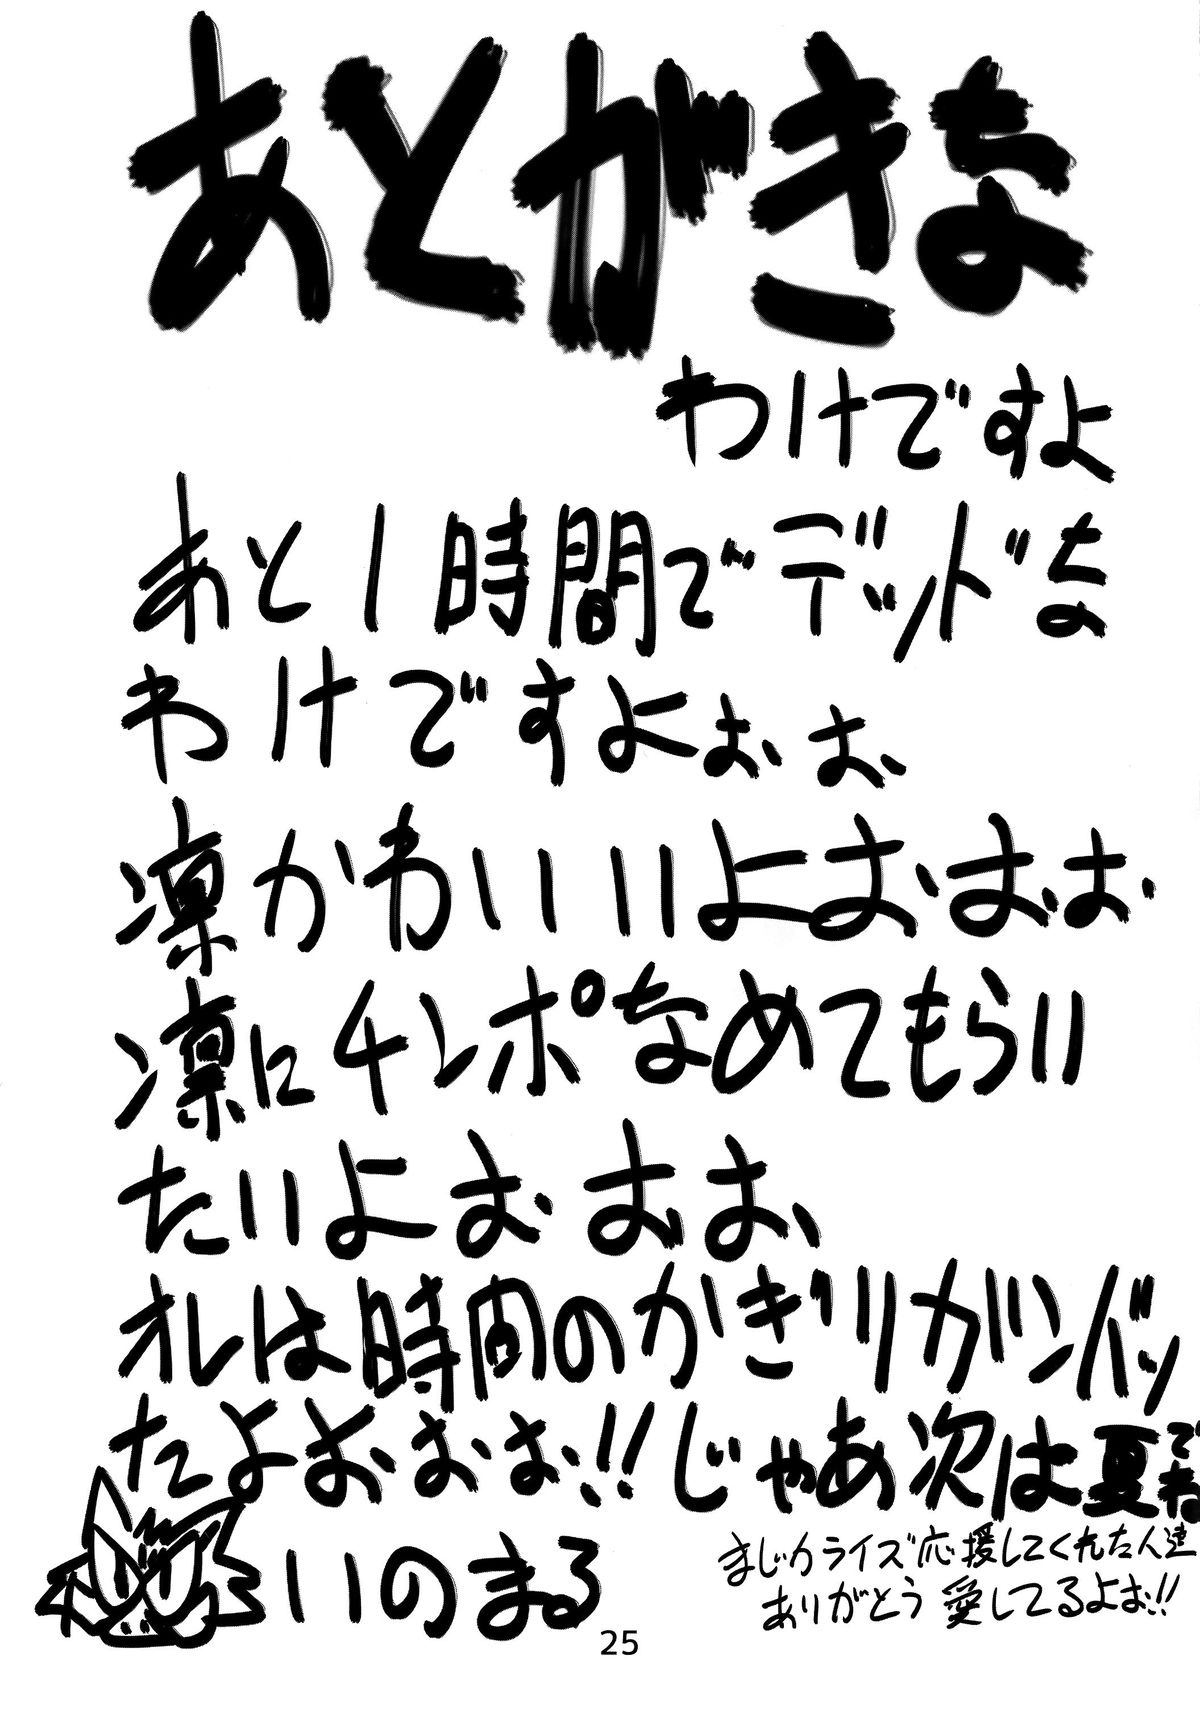 あとがきな
わけですよ
あと1時間でデッドな
わけですよぉぉ
凛かわいいよおおぉ
凛にチンポなめてもらい
たいよぉおお
オレは時間のかぎりガンバッ
たよおおぉ!!じゃあ次は夏でね
いのまる
まじカライズ応援してくれた人達
ありがとう愛してるよぉ!!
25